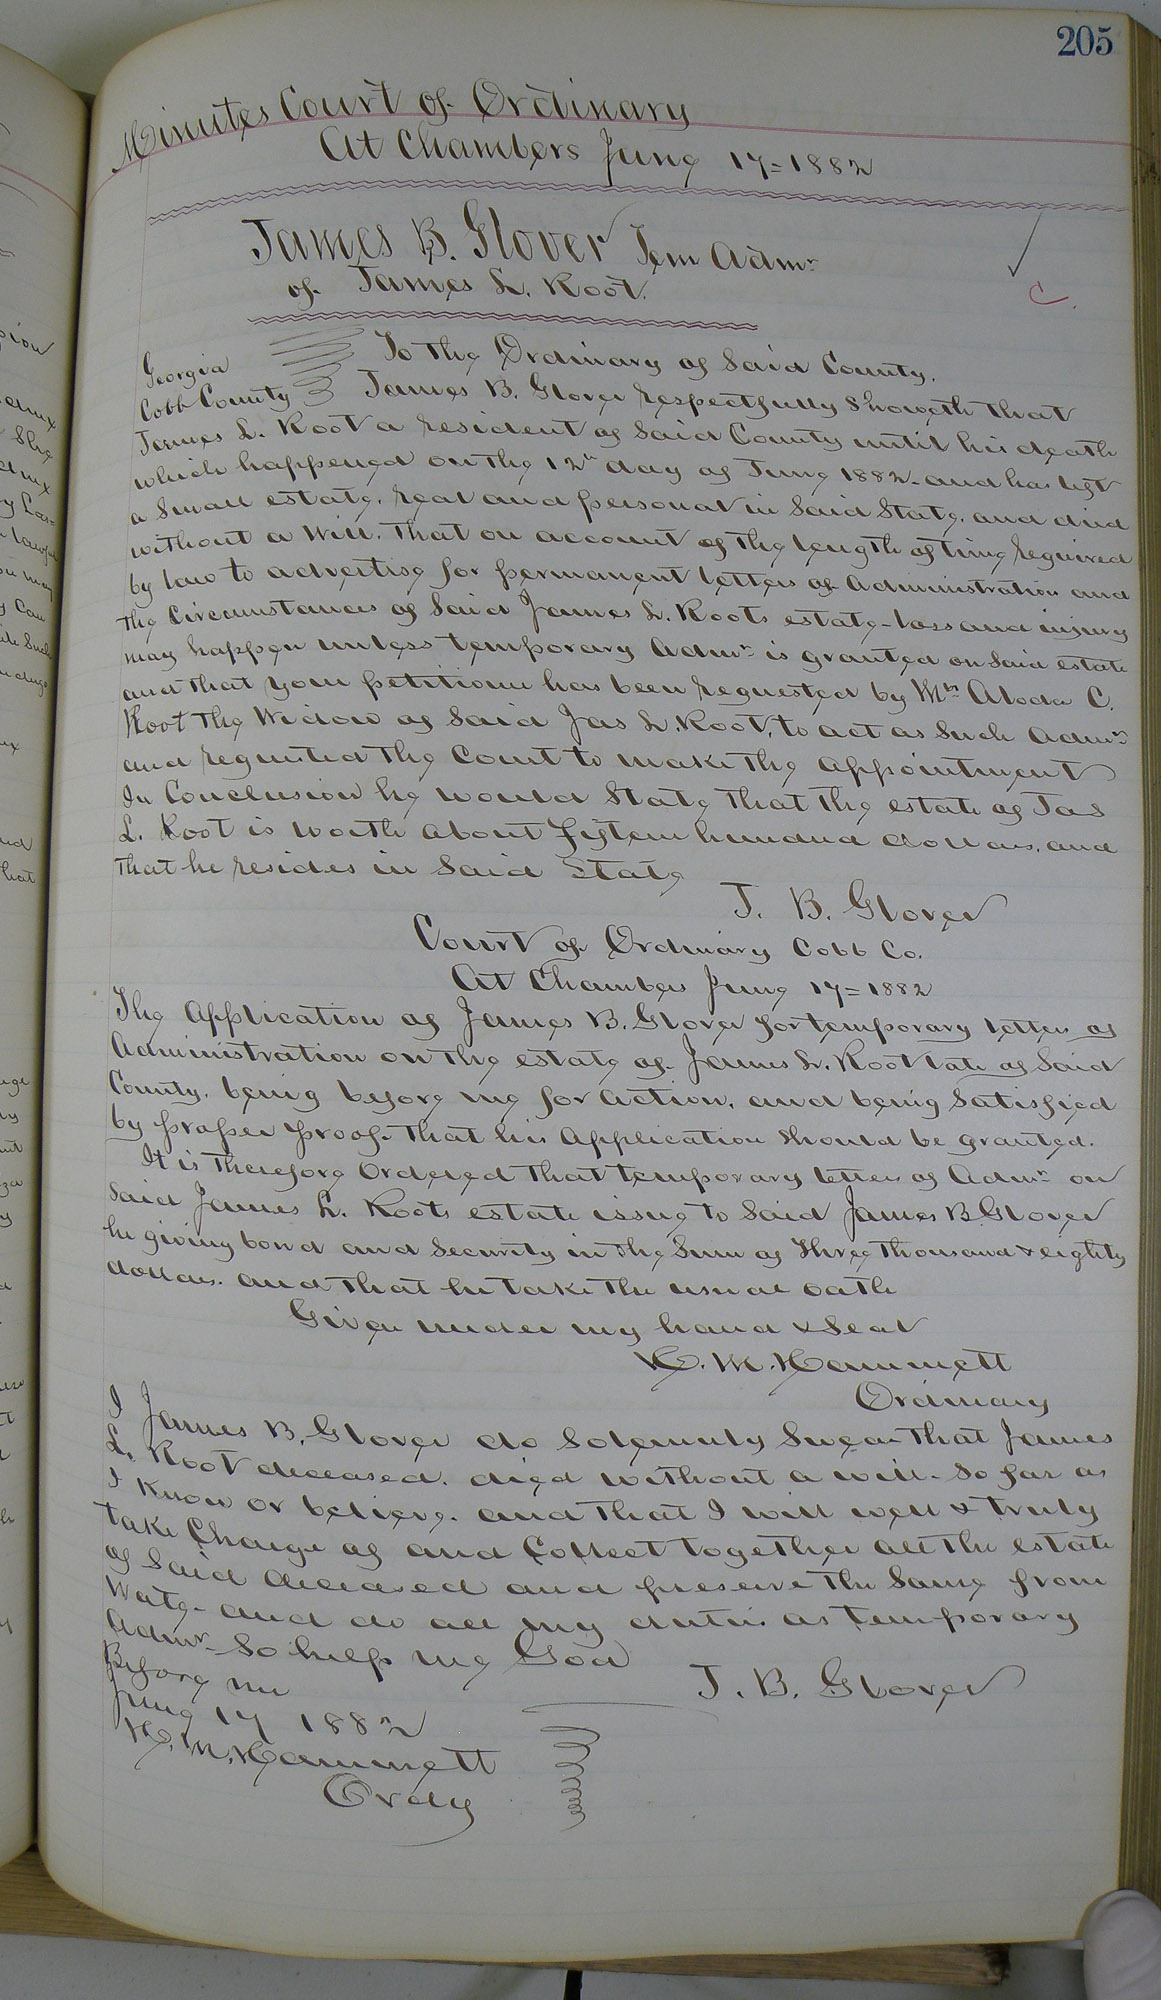 205
Minutes Court of Ordinary
At Chambers June 17=1882
James B. Glover Tem Admr
of James L. Root.
C
Georgia
Cobb County
To The Ordinary of Said County.
James B. Glover respectfully Showeth that
James L. Root a resident of Said County until his death
which happened on the 12th day of June 1882. and has left
a Small estate, real and personal in Said State. and died
without a Will. That on account of the length of time required
by law to advertise for permanent letters of Administration and
the Circumstances of Said James L. Roots estate-loss and injury
may happen unless temporary Admr is granted on Said estate
and that your petitioner has been requested by Mrs C.
Root the Widow of Said Jas L. Root, to act as Such Admr
and requested the Court to make the Appointment
In Conclusion he would State that the estate of Jas
L. Root is worth about fifteen hundred dollars, and
that he resides in Said State
J. B. Glover
Court of Ordinary Cobb Co.
At Chambers June 17=1882
The Application of James B. Glover for temporary letters of
Administration on the estate of James L. Root late of Said
County. being before me for action, and being Satisfied
by proper proof. that his Application Should be granted.
It is Therefore Ordered that temporary letters of Admr on
Said James L. Roots estate issue to Said James B. Glover
he giving bond and Security in the Sum of three thousand & eighty
dollars. and that he take the usual oath
Given under my hand & Seal
H. M. Hammett
Ordinary
I James B. Glover do Solemnly Swear that James
L. Root deceased. died without a will. So far as
I Know or believe. and that I will well & truly
take Charge of and Collect together all the estate
of Said deceased and preserve the Same from
Wate- and do all my duties as temporary
Admr- So help me God
J. B. Glover
Before me
June 17 1882
H. M. Hammett
Ordy